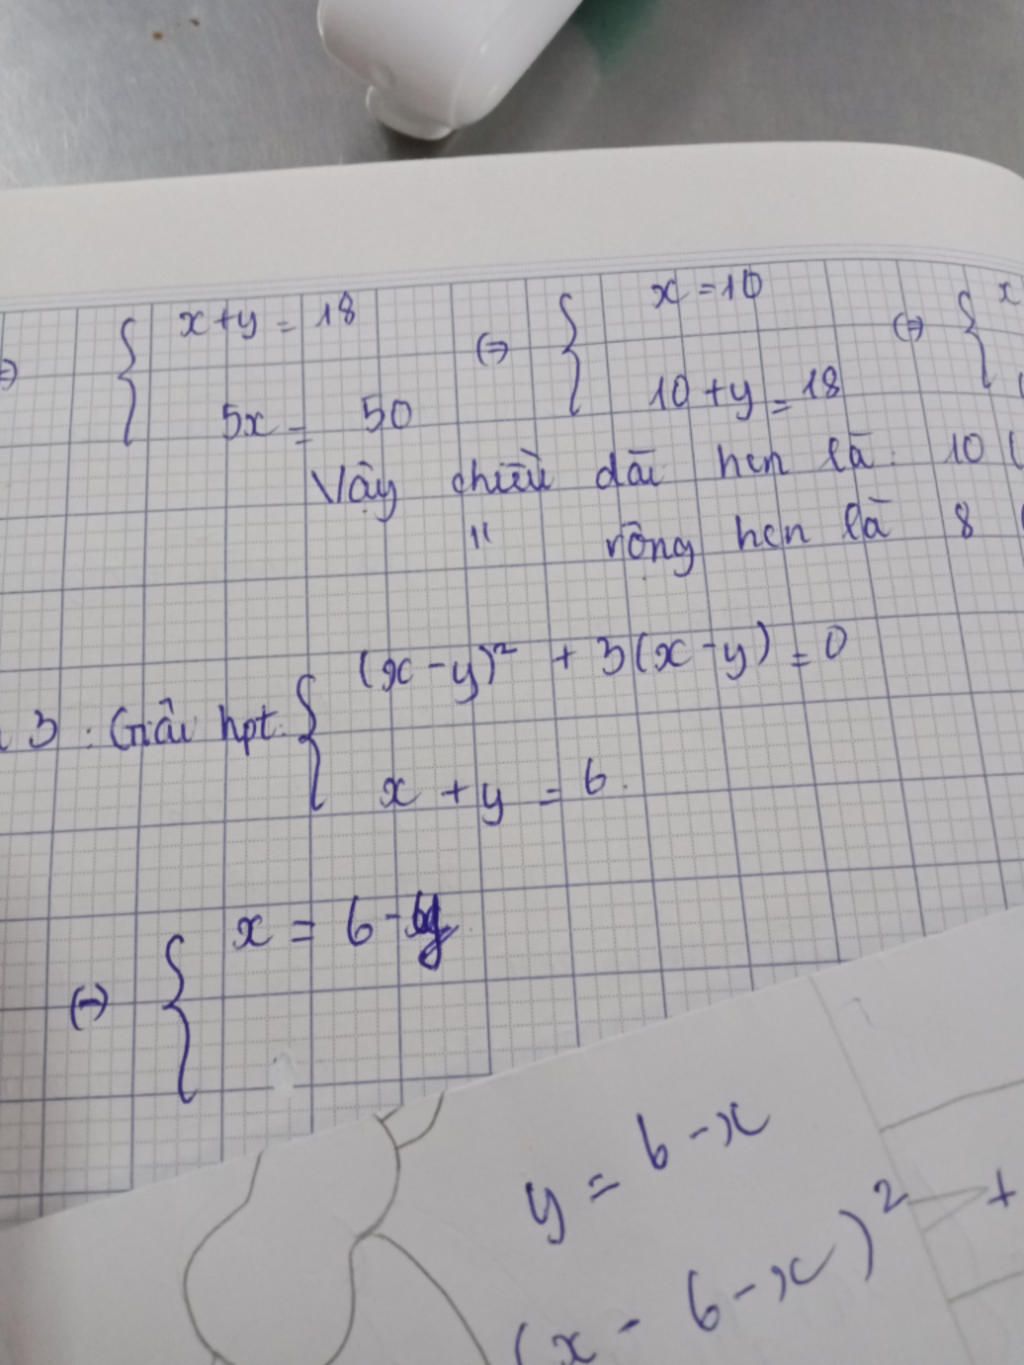 { x+y = 18 (=) { x = 10 (=) { x
5x = 50 10 + y = 18
Vậy chiều dài hcn là: 10 (
" rộng hcn là 8 (
3 : Giải hpt: { (x-y)² + 3(x-y) = 0
x + y = 6.
(=) { x = 6 - y
y = 6 - x
(x - 6 - x)² +